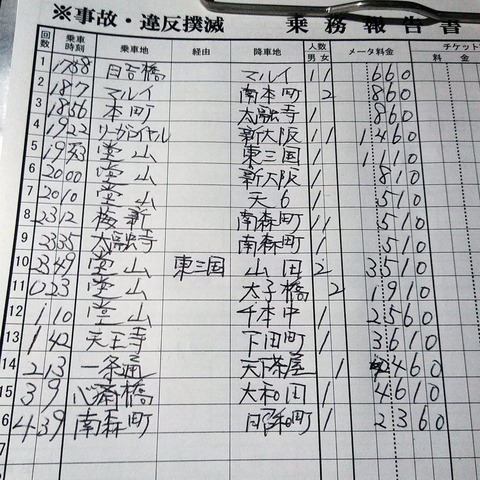 ※事故・違反撲滅 乗務報告書
回数 乗車時刻 乗車地 経由 降車地 人数 男 女 メータ料金 チケット 料金
1 1758 日吉橋 マルイ 1 1 660
2 1817 マルイ 南本町 2 860
3 1856 本町 太融寺 1 860
4 1922 リーガロイヤル 新大阪 1 1 1460
5 1953 堂山 東三国 1 1110
6 2000 堂山 新大阪 1 810
7 2010 堂山 天6 1 510
8 2312 梅新 南森町 1 1 510
9 2335 太融寺 南森町 1 510
10 2349 堂山 東三国 山田 2 3510
11 023 堂山 太子橋 2 1910
12 110 堂山 千本中 1 2560
13 142 天王寺 下田町 1 3610
14 213 一条通 天下茶屋 1 2460
15 39 心斎橋 大和田 1 4610
16 439 南森町 昭和町 1 2360
17